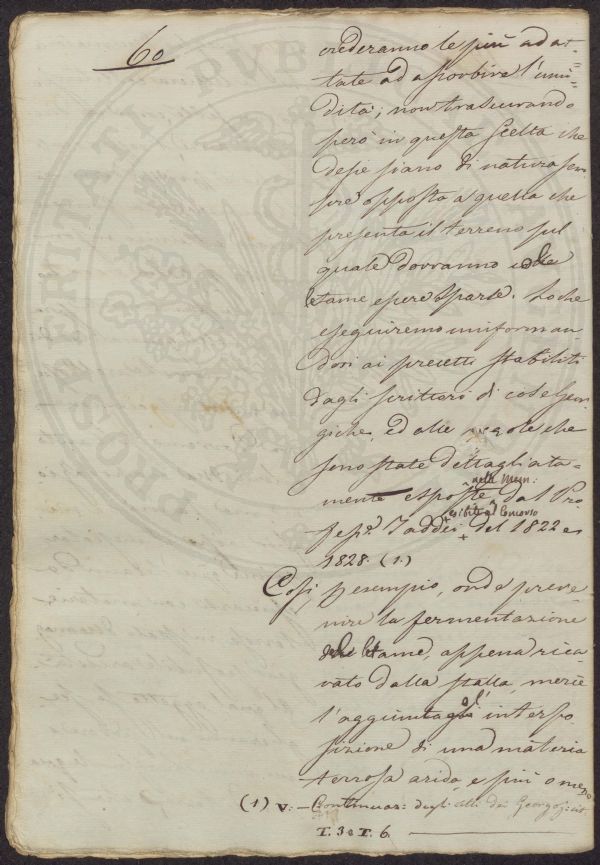 60
crederanno le più adat-
tate ad assorbire l'umi-
dità; non trascurando
però in questa scelta che
desse siano di natura sem
pre opposta a quella che
presenta il terreno sul
quale dovranno
letame essere sparse. Loche
eseguiremo uniforman
doci ai precetti stabiliti
dagli scrittori di cose Geor
giche, ed alle regole che
sono state dettagliata-
nelle Mem:
mente esposte dal Pro
esibite al Concorso
fessr. Taddei del 1822 e
1828. (1.)
Così, p esempio, onde preve
nire la fermentazione
del letame, appena rica
vato dalla stalla, mercè
l'aggiunta od interpo
sizione di una materia
terrosa arida, e più o meno
(1) V: - Continuaz: degli Atti dei Georgofili
T. 3 e T. 6.
PROSPERITATI PUBLICAE